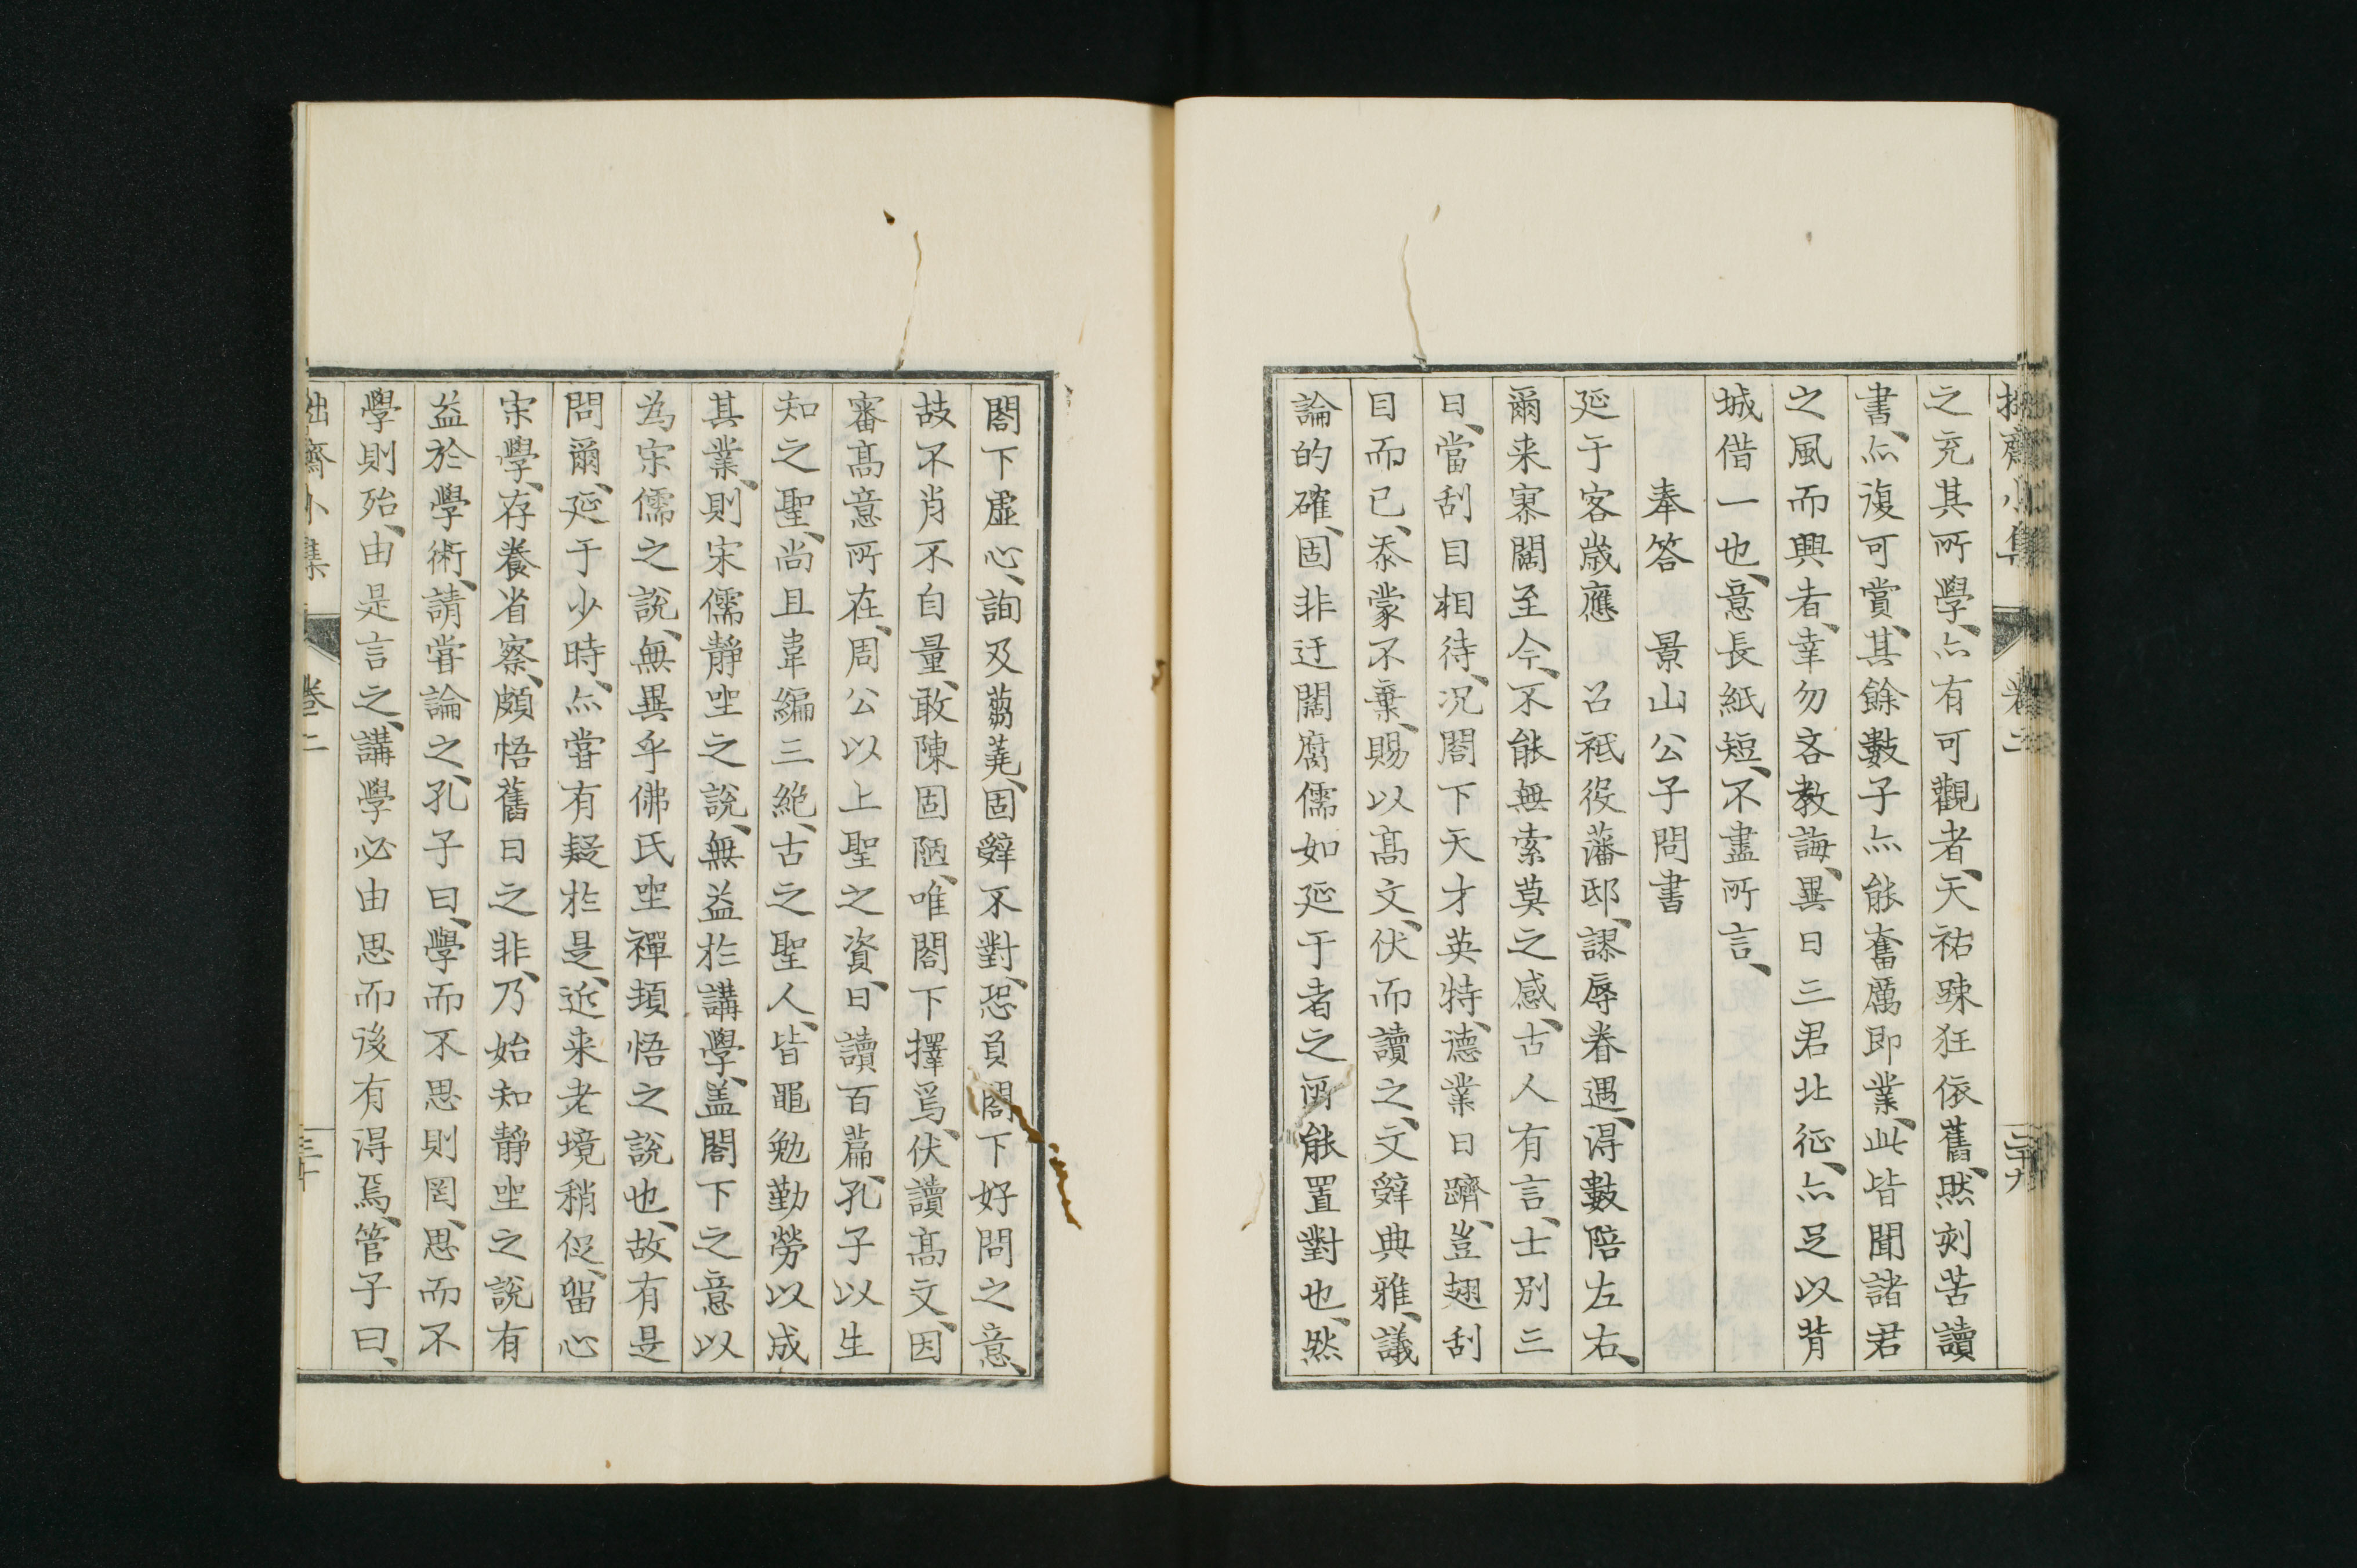 拙齋小集 卷二 二十九
之充其所學、亦有可觀者、天祐踈狂依舊、然刻苦讀
書、亦復可賞、其餘數子亦能奮厲即業、此皆聞諸君
之風而興者、幸勿吝教誨、異日三君北征、亦足以背
城借一也、意長紙短、不盡所言、
奉答 景山公子問書
延于客歲應 召祗役藩邸、謬辱眷遇、得數陪左右、
爾来寥闊至今、不能無索莫之感、古人有言、士別三
日、當刮目相待、况閤下天才英特、德業日躋、豈翅刮
目而已、忝蒙不棄、賜以高文、伏而讀之、文辤典雅、議
論的確、固非迂闊腐儒如延于者之所能置對也、然
閤下虛心、詢及蒭蕘、固辤不對、恐負閤下好問之意、
故不肖不自量、敢陳固陋、唯閤下擇焉、伏讀高文、因
審高意所在、周公以上聖之資、日讀百篇、孔子以生
知之聖、尚且韋編三絶、古之聖人、皆黽勉勤勞以成
其業、則宋儒靜坐之說、無益於講學、盖閤下之意以
為宋儒之說、無異乎佛氏坐禪頓悟之說也、故有是
問爾、延于少時、亦嘗有疑於是、近来老境稍侵、留心
宋學、存養省察、頗悟舊日之非、乃始知靜坐之說有
益於學術、請甞論之、孔子曰、學而不思則罔、思而不
學則殆、由是言之、講學必由思而後有得焉、管子曰、
拙齋小集 卷二 三十